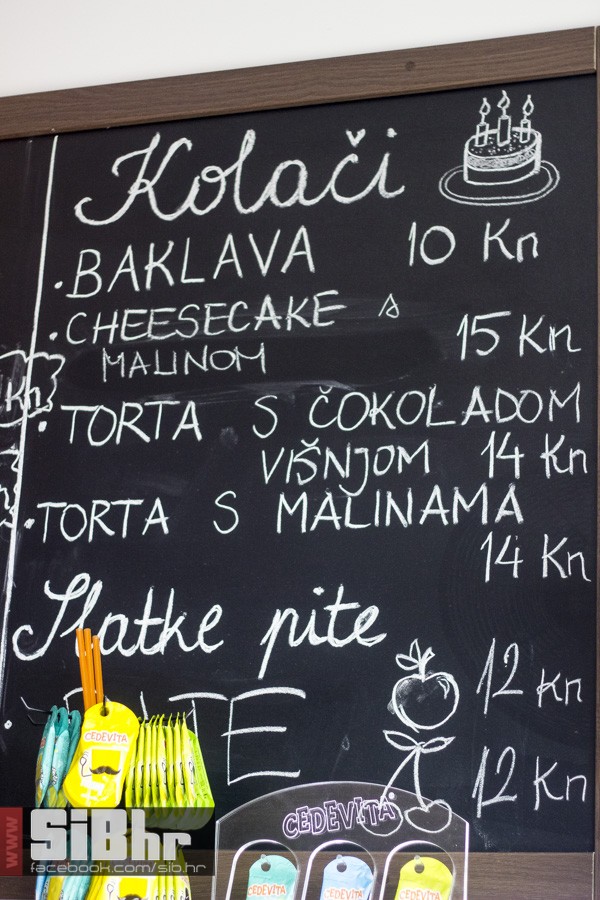 Kolači
·BAKLAVA 10 Kn
·CHEESECAKE s
MALINOM 15 Kn
·TORTA S ČOKOLADOM
VIŠNJOM 14 Kn
·TORTA S MALINAMA
14 Kn
Slatke pite
12 Kn
12 Kn
Kn
CEDEVITA
CEDEVITA
CEDEVITA
CEDEVITA
CEDEVITA
www
SiBhr
facebook.com/sib.hr